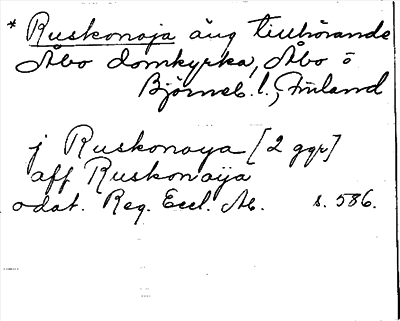 * Ruskonoja äng tillhörande
Åbo domkyrka, Åbo ö
Björneb. l., Finland
j Ruskonoya [2 ggr]
aff Ruskonaÿa
odat. Reg. Eccl. Ab. s. 586.